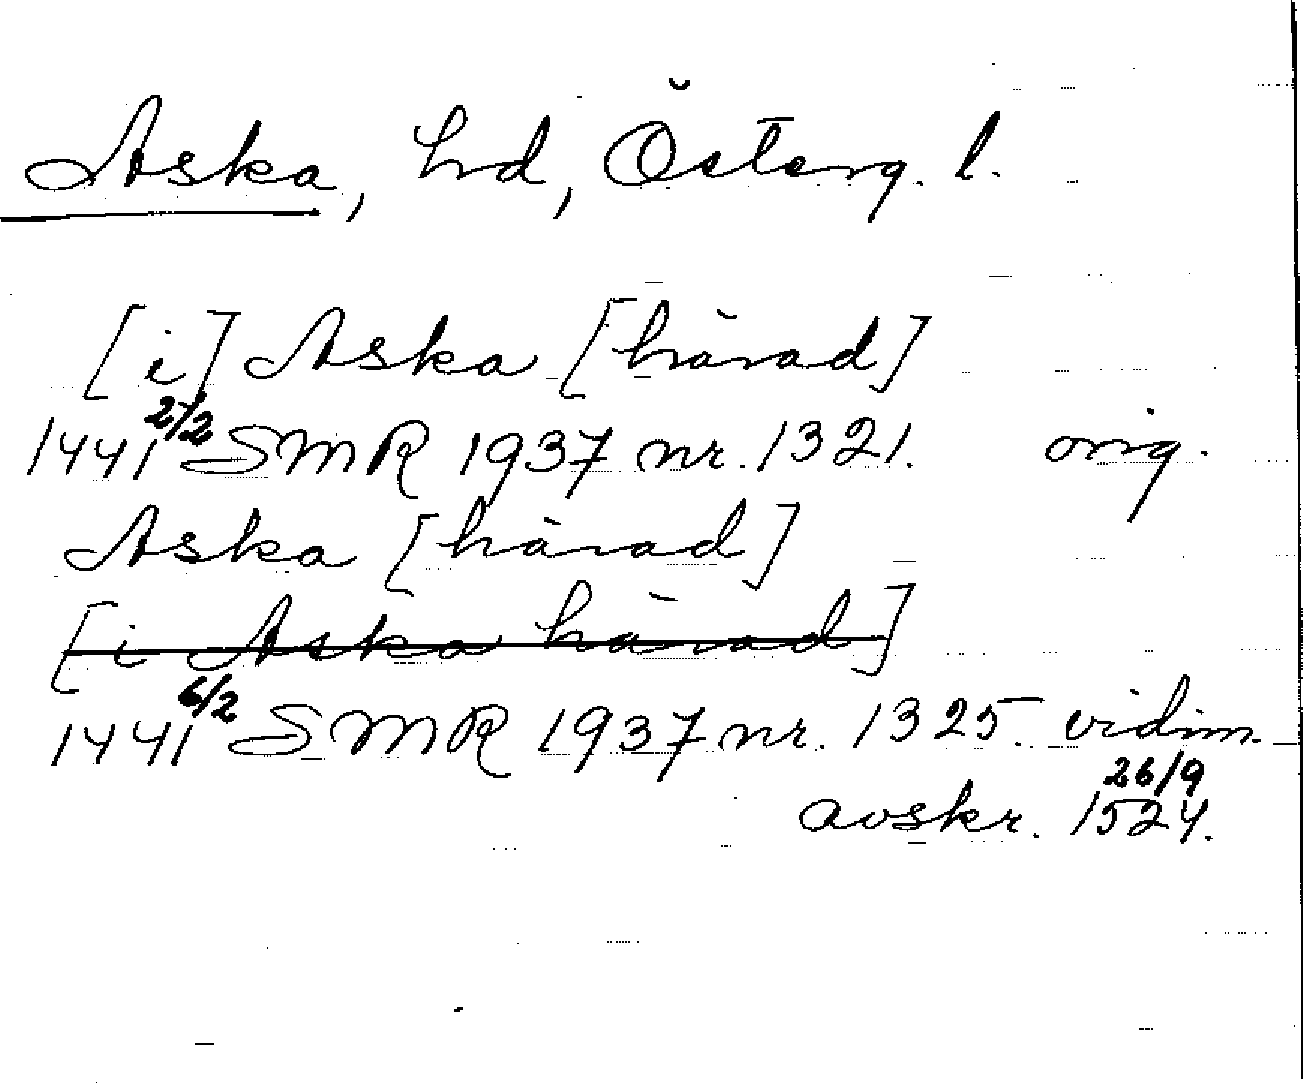 Aska, hd, Österg. l.
[i] Aska [härad]
1441 2/2 SMR 1937 nr. 1321. orig.
Aska [härad]
[i Aska härad]
1441 6/2 SMR 1937 nr. 1325. vidim.
26/9
avskr. 1524.